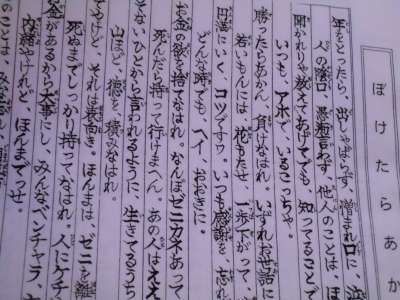 ぼけたらあか
年をとったら、出しゃばらず、憎まれ口に、
人の陰口、愚痴言わず、他人のことは、ほ
聞かれりゃ教えてあげても、知ってることで
いつも、アホで、いるこっちゃ。
勝ったらあかん、負けなはれ。いずれお世話に
若いもんには、花もたせ、一歩下がって、
円満にいく、コツですヮ。いつも感謝を、忘れ
どんな時でも、ヘイ、おおきに。
お金の欲を捨てなはれ。なんぼゼニカネあって
死んだら持って行けまへん。あの人はええ
そないひとから言われるように 生きてるうち
山ほど、徳を、積みなはれ。
そやけど、それは表向き。ほんまは、ゼニを離
死ぬまでしっかり持ってなはれ。人にケチ
金があるから大事にし、みんなベンチャラ、
内緒やけれど、ほんまでっせ。
のことは、みな忘れ